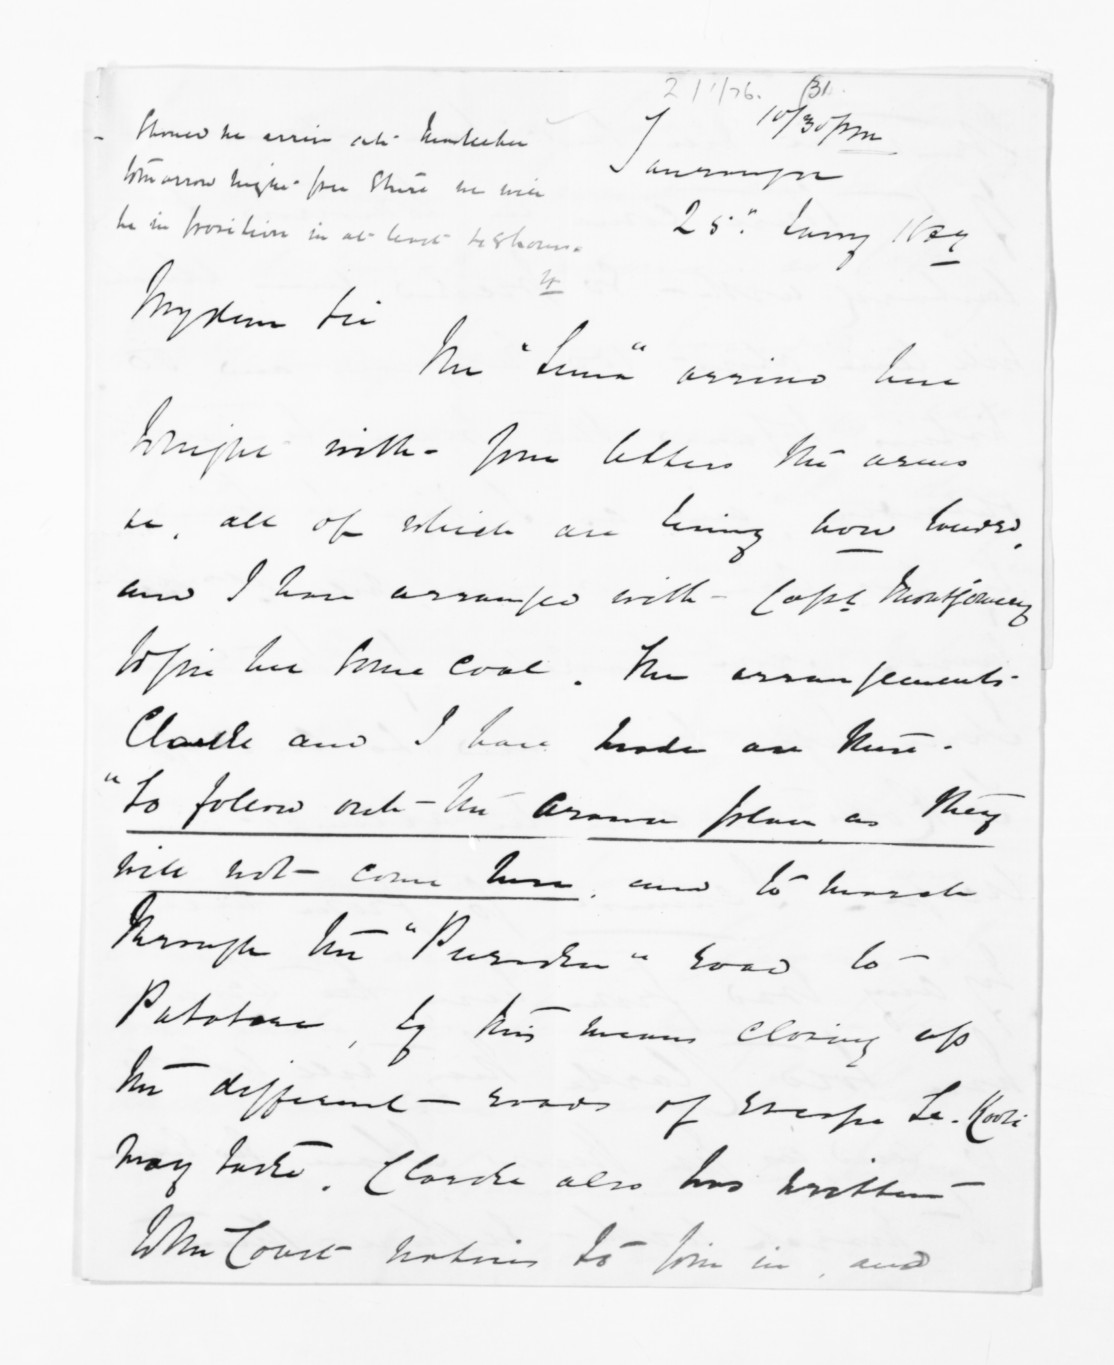 10/30 pm
Tauranga
25" Jany 1870
Should he arrive at
tomorrow night from there he will
be in position in at least 48 hours.
My dear Sir
The "Luna" arrived here
tonight with your letters the arms
&c, all of which are being now landed,
and I have arranged with Capt. Montgomery
to give her some coal. The arrangements
Clarke and I have made are these.
"To follow out the Arawa plan as they
will not come here, and to march
through the road to
Patatere, by this means closing up
the different roads of escape Te Kooti
may take. Clarke also has written
to the Coast natives to join in, and